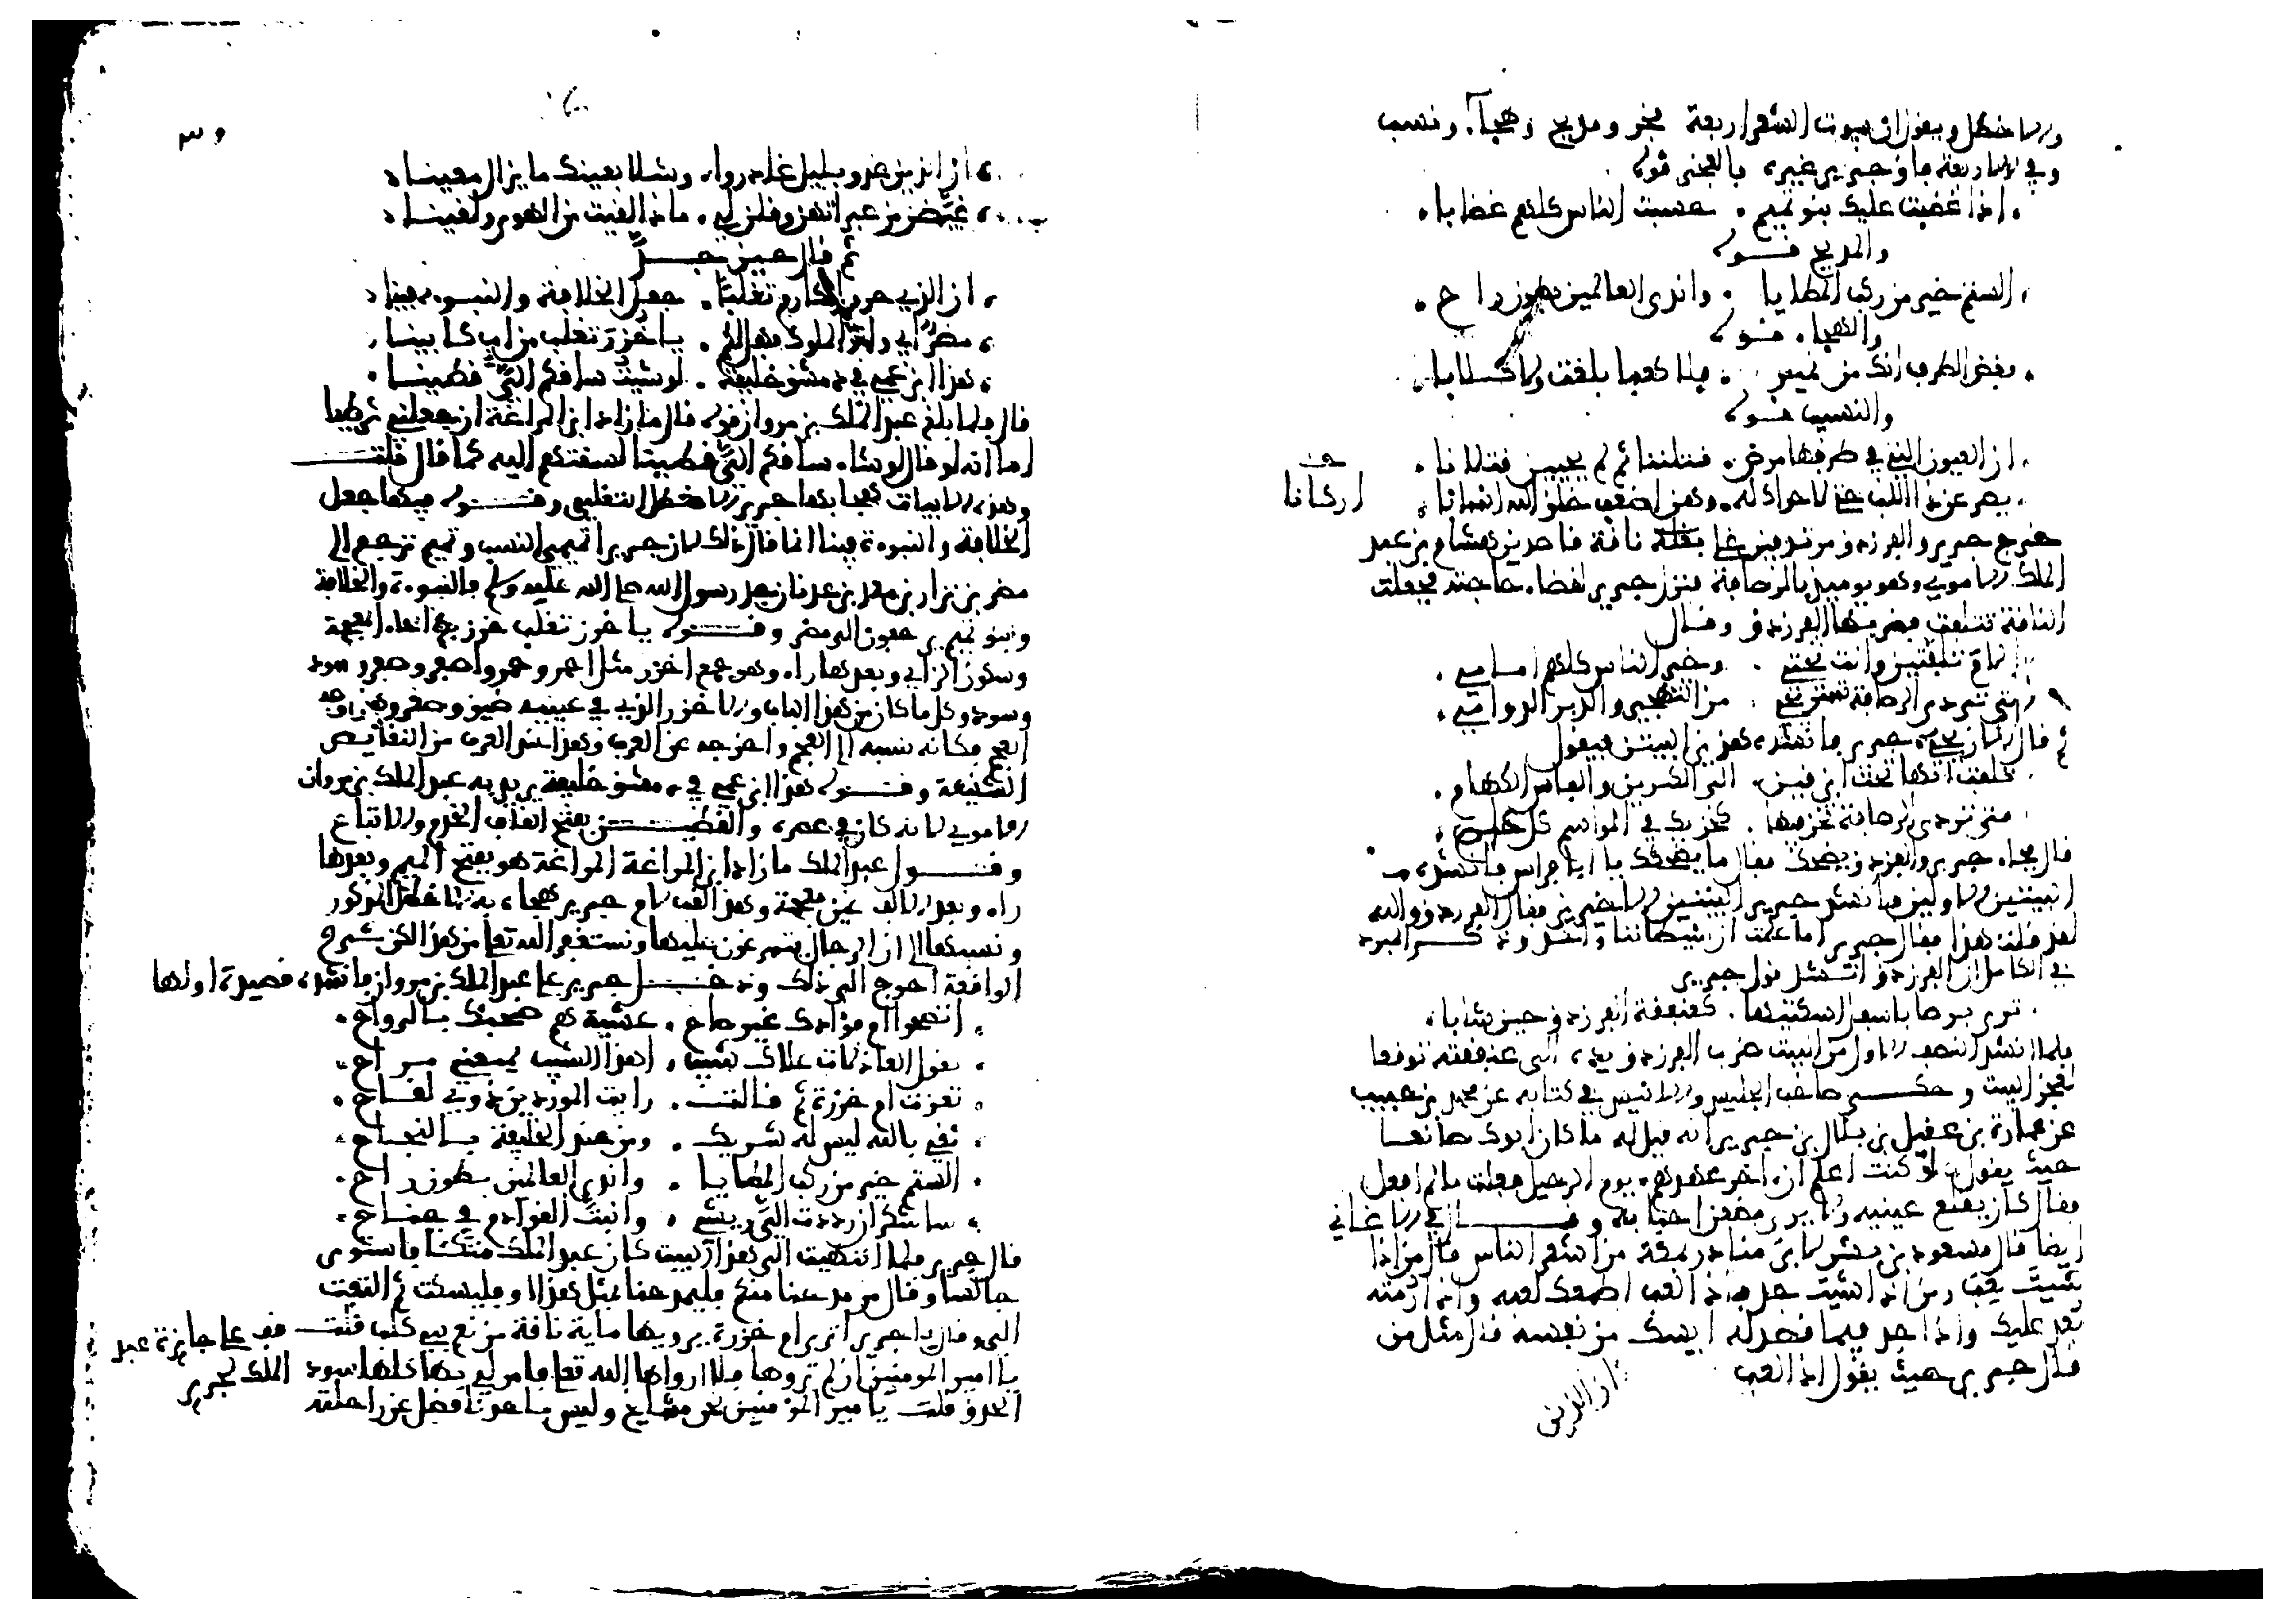 والاخطل ويقال ان بيوت الشعر اربعة فخر ومديح وهجاء ونسيب
وفي الاربعة فاق جرير غيره فالفخر قوله
اذا غضبت عليك بنو تميم حسبت الناس كلهم غضابا
والمديح قوله
الستم خير من ركب المطايا واندى العالمين بطون راح
والهجاء قوله
فغض الطرف انك من نمير فلا كعبا بلغت ولا كلابا
والنسيب قوله
ان العيون التي في طرفها مرض قتلننا ثم لم يحيين قتلانا
يصرعن ذا اللب حتى لا حراك له وهن اضعف خلق الله انسانا
اركانا
خرج جرير والفرزدق مرتدفين على ناقة قاصدين هشام بن عبد
الملك الاموي وهو يومئذ بالرصافة فنزل جرير لقضاء حاجته فجعلت
الناقة تتلفت فضربها الفرزدق وقال
الام تلفتين وانت تحتي وخير الناس كلهم امامي
متى تردي الرصافة تستريحي من التهجير والدبر الدوامي
ثم قال الان يجيء جرير فانشده هذين البيتين فيقول
تلفت انها تحت ابن قين الى الكيرين والفاس الكهام
متى ترد الرصافة تخز فيها كخزيك في المواسم كل عام
قال فجاء جرير والفرزدق يضحك فقال ما يضحكك يا ابا فراس فانشده
البيتين الاولين فانشد جرير البيتين الاخيرين فقال الفرزدق والله
لقد قلت هذا فقال جرير اما علمت ان شيطاننا واحد وذكر المبرد
في الكامل ان الفرزدق انشد قول جرير
ترى برصا باسفل اسكتيها كعنفقة الفرزدق حين شابا
فلما انشد النصف الاول من البيت ضرب الفرزدق يده الى عنفقته توقعا
لعجز البيت وحكى صاحب الجليس والانيس في كتابه عن محمد بن حبيب
عن عمارة بن عقيل بن بلال بن جرير انه قيل له ما كان ابوك صانعا
حيث يقول لو كنت اعلم ان اخر عهدهم يوم الرحيل فعلت ما لم افعل
فقال كان يقلع عينيه ولا يرى مظعن احبابه وقال في الاغاني
ايضا قال مسعود بن بشر لابن مناذر بمكة من اشعر الناس قال من اذا
شيت لعب ومن اذا شيت جد فاذا لعب اطمعك لعبه واذا رمته
بعد عليك واذا جد فيما قصد له ايسك من نفسه قال مثل من
قال جرير حيث يقول اذا لعب
ان الذين
ان الذين غدوا بلبك غادروا وشلا بعينك ما يزال معينا
غيضن من عبراتهن وقلن لي ماذا لقيت من الهوى ولقينا
ثم قال حين جد
ان الذي حرم المكارم تغلبا جعل الخلافة والنبوة فينا
مضر ابي وابو الملوك فهل لكم يا خزر تغلب من اب كابينا
هذا ابن عمي في دمشق خليفة لو شيت ساقكم الي قطينا
قال فلما بلغ عبد الملك بن مروان قوله قال ما زاد ابن المراغة ان جعلني شرطيا
اما انه لو قال لو شاء ساقكم الي قطينا لسقتهم اليه كما قال قلت
وهذه الابيات هجا بها جرير الاخطل التغلبي وقوله فيها جعل
الخلافة والنبوة فينا انما قال ذلك لان جريرا تميمي النسب وتميم ترجع الى
مضر بن نزار بن معد بن عدنان جد رسول الله صلى الله عليه وسلم فالنبوة والخلافة
وبنو تميم يرجعون الى مضر وقوله يا خزر تغلب خزر بضم الخاء المعجمة
وسكون الزاي وبعدها راء وهو جمع اخزر مثل احمر وحمر واصفر وصفر واسود
وسود وكل ما كان من هذا الباب والاخزر الذي في عينيه ضيق وصغر وهذا وصف
العجم فكانه نسبه الى العجم واخرجه عن العرب وهذا عند العرب من النقايص
الشنيعة وقوله هذا ابن عمي في دمشق خليفة يريد به عبد الملك بن مروان
الاموي لانه كان في عصره والقطين بفتح القاف الخدم والاتباع
وقول عبد الملك ما زاد ابن المراغة المراغة هو بفتح الميم وبعدها
راء وبعد الالف غين معجمة وهذا لقب لام جرير هجاه به الاخطل المذكور
ونسبها الى ان الرجال يتمرغون عليها ونستغفر الله تعالى من هذا لكن شرح
الواقعة احوج الى ذلك ودخل جرير على عبد الملك بن مروان فانشده قصيدة اولها
اتصحوا ام فؤادك غير صاح عشية هم صحبك بالرواح
تقول العاذلات علاك شيب اهذا الشيب يمنعني مراحي
تعزت ام حزرة ثم قالت رايت الموردين ذوي لقاح
ثقي بالله ليس له شريك ومن عند الخليفة بالنجاح
الستم خير من ركب المطايا واندى العالمين بطون راح
ساشكر ان رددت الي ريشي وانبت القوادم في جناحي
قال جرير فلما انتهيت الى هذا البيت كان عبد الملك متكئا فاستوى
جالسا وقال من مدحنا منكم فليمدحنا بمثل هذا او فليسكت ثم التفت
الي وقال يا جرير اترى ام حزرة يرويها ماية ناقة من نعم بني كلب قلت
قف على جايزة عبد الملك لجرير
يا امير المومنين ان لم تروها فلا ارواها الله تعالى فامر لي بها كلها سود
الحدق قلت يا امير المؤمنين نحن مشايخ وليس باحدنا فضل عن راحلته